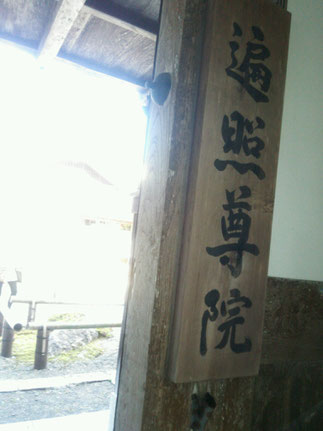 遍照尊院